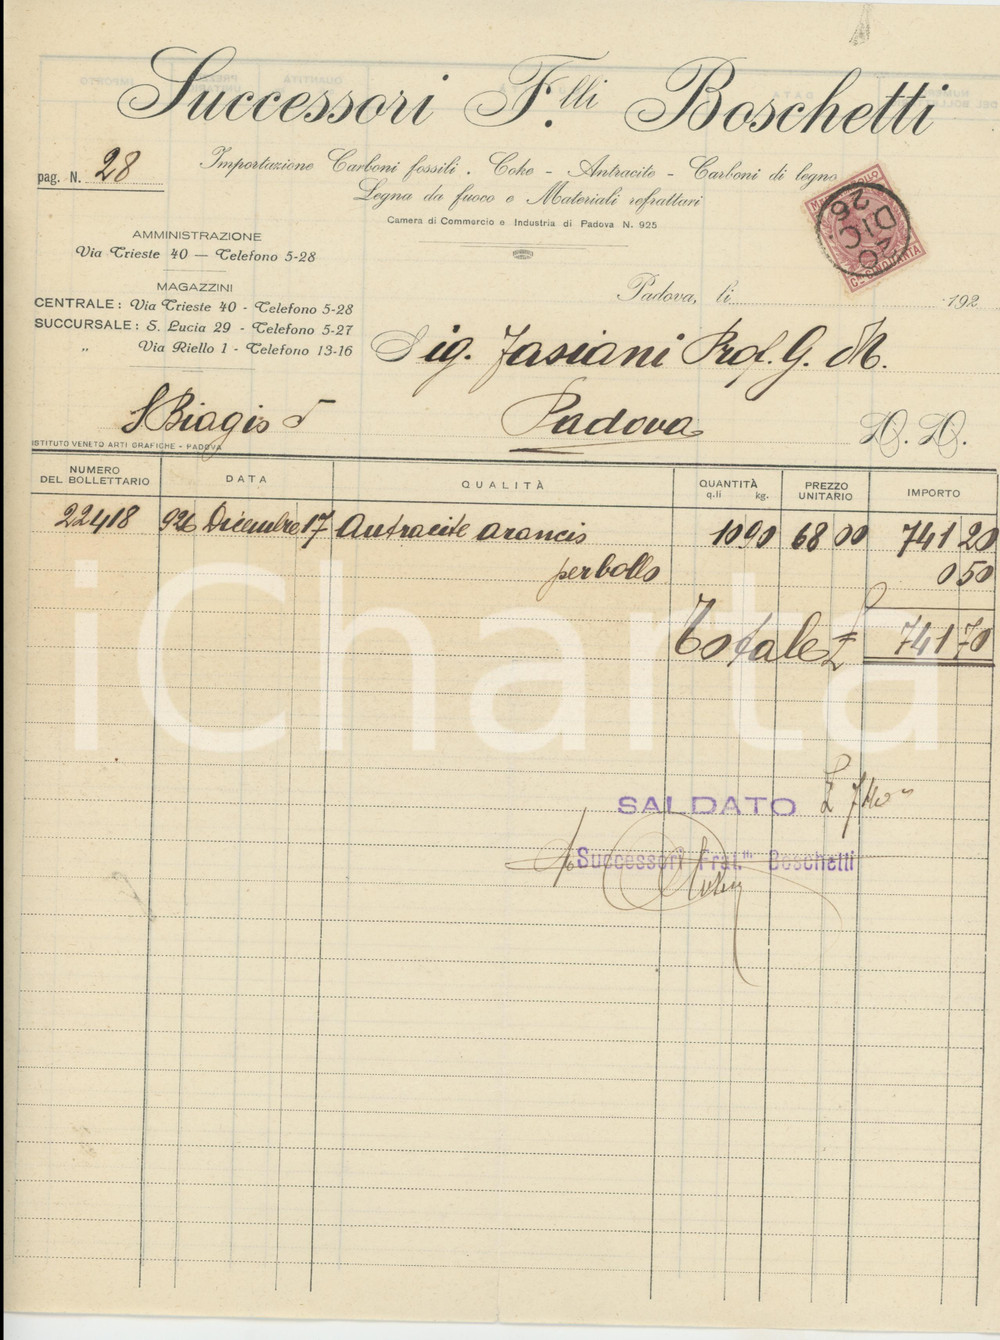 Successori F.lli Boschetti
pag. N. 28
Importazione Carboni fossili . Coke - Antracite - Carboni di legno
Legna da fuoco e Materiali refrattari
Camera di Commercio e Industria di Padova N. 925
MARCA DA BOLLO
DIC
26
Ct. CINQUANTA
AMMINISTRAZIONE
Via Trieste 40 — Telefono 5-28
MAGAZZINI
CENTRALE: Via Trieste 40 - Telefono 5-28
SUCCURSALE: S. Lucia 29 - Telefono 5-27
„ Via Riello 1 - Telefono 13-16
Padova, li 192
Sig. Fasiani Prof. G. M.
S Biagio 5
Padova
D. D.
ISTITUTO VENETO ARTI GRAFICHE - PADOVA
NUMERO DEL BOLLETTARIO DATA QUALITÀ QUANTITÀ q.li kg. PREZZO UNITARIO IMPORTO
22418 926 Dicembre 17 Antracite arancio 10 90 68 00 741 20
per bollo 0 50
Totale £ 741 70
SALDATO £ 740
p. Successori Frat.lli Boschetti
iCharta